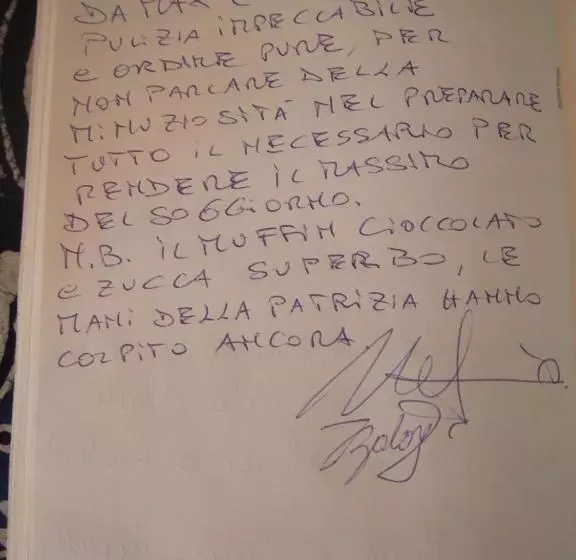 PULIZIA IMPECCABILE
E ORDINE PURE, PER
NON PARLARE DELLA
MINUZIOSITÁ NEL PREPARARE
TUTTO IL NECESSARIO PER
RENDERE IL MASSIMO
DEL SOGGIORNO.
N.B. IL MUFFIN CIOCCOLATO
E ZUCCA SUPERBO, LE
MANI DELLA PATRIZIA HANNO
COLPITO ANCORA.